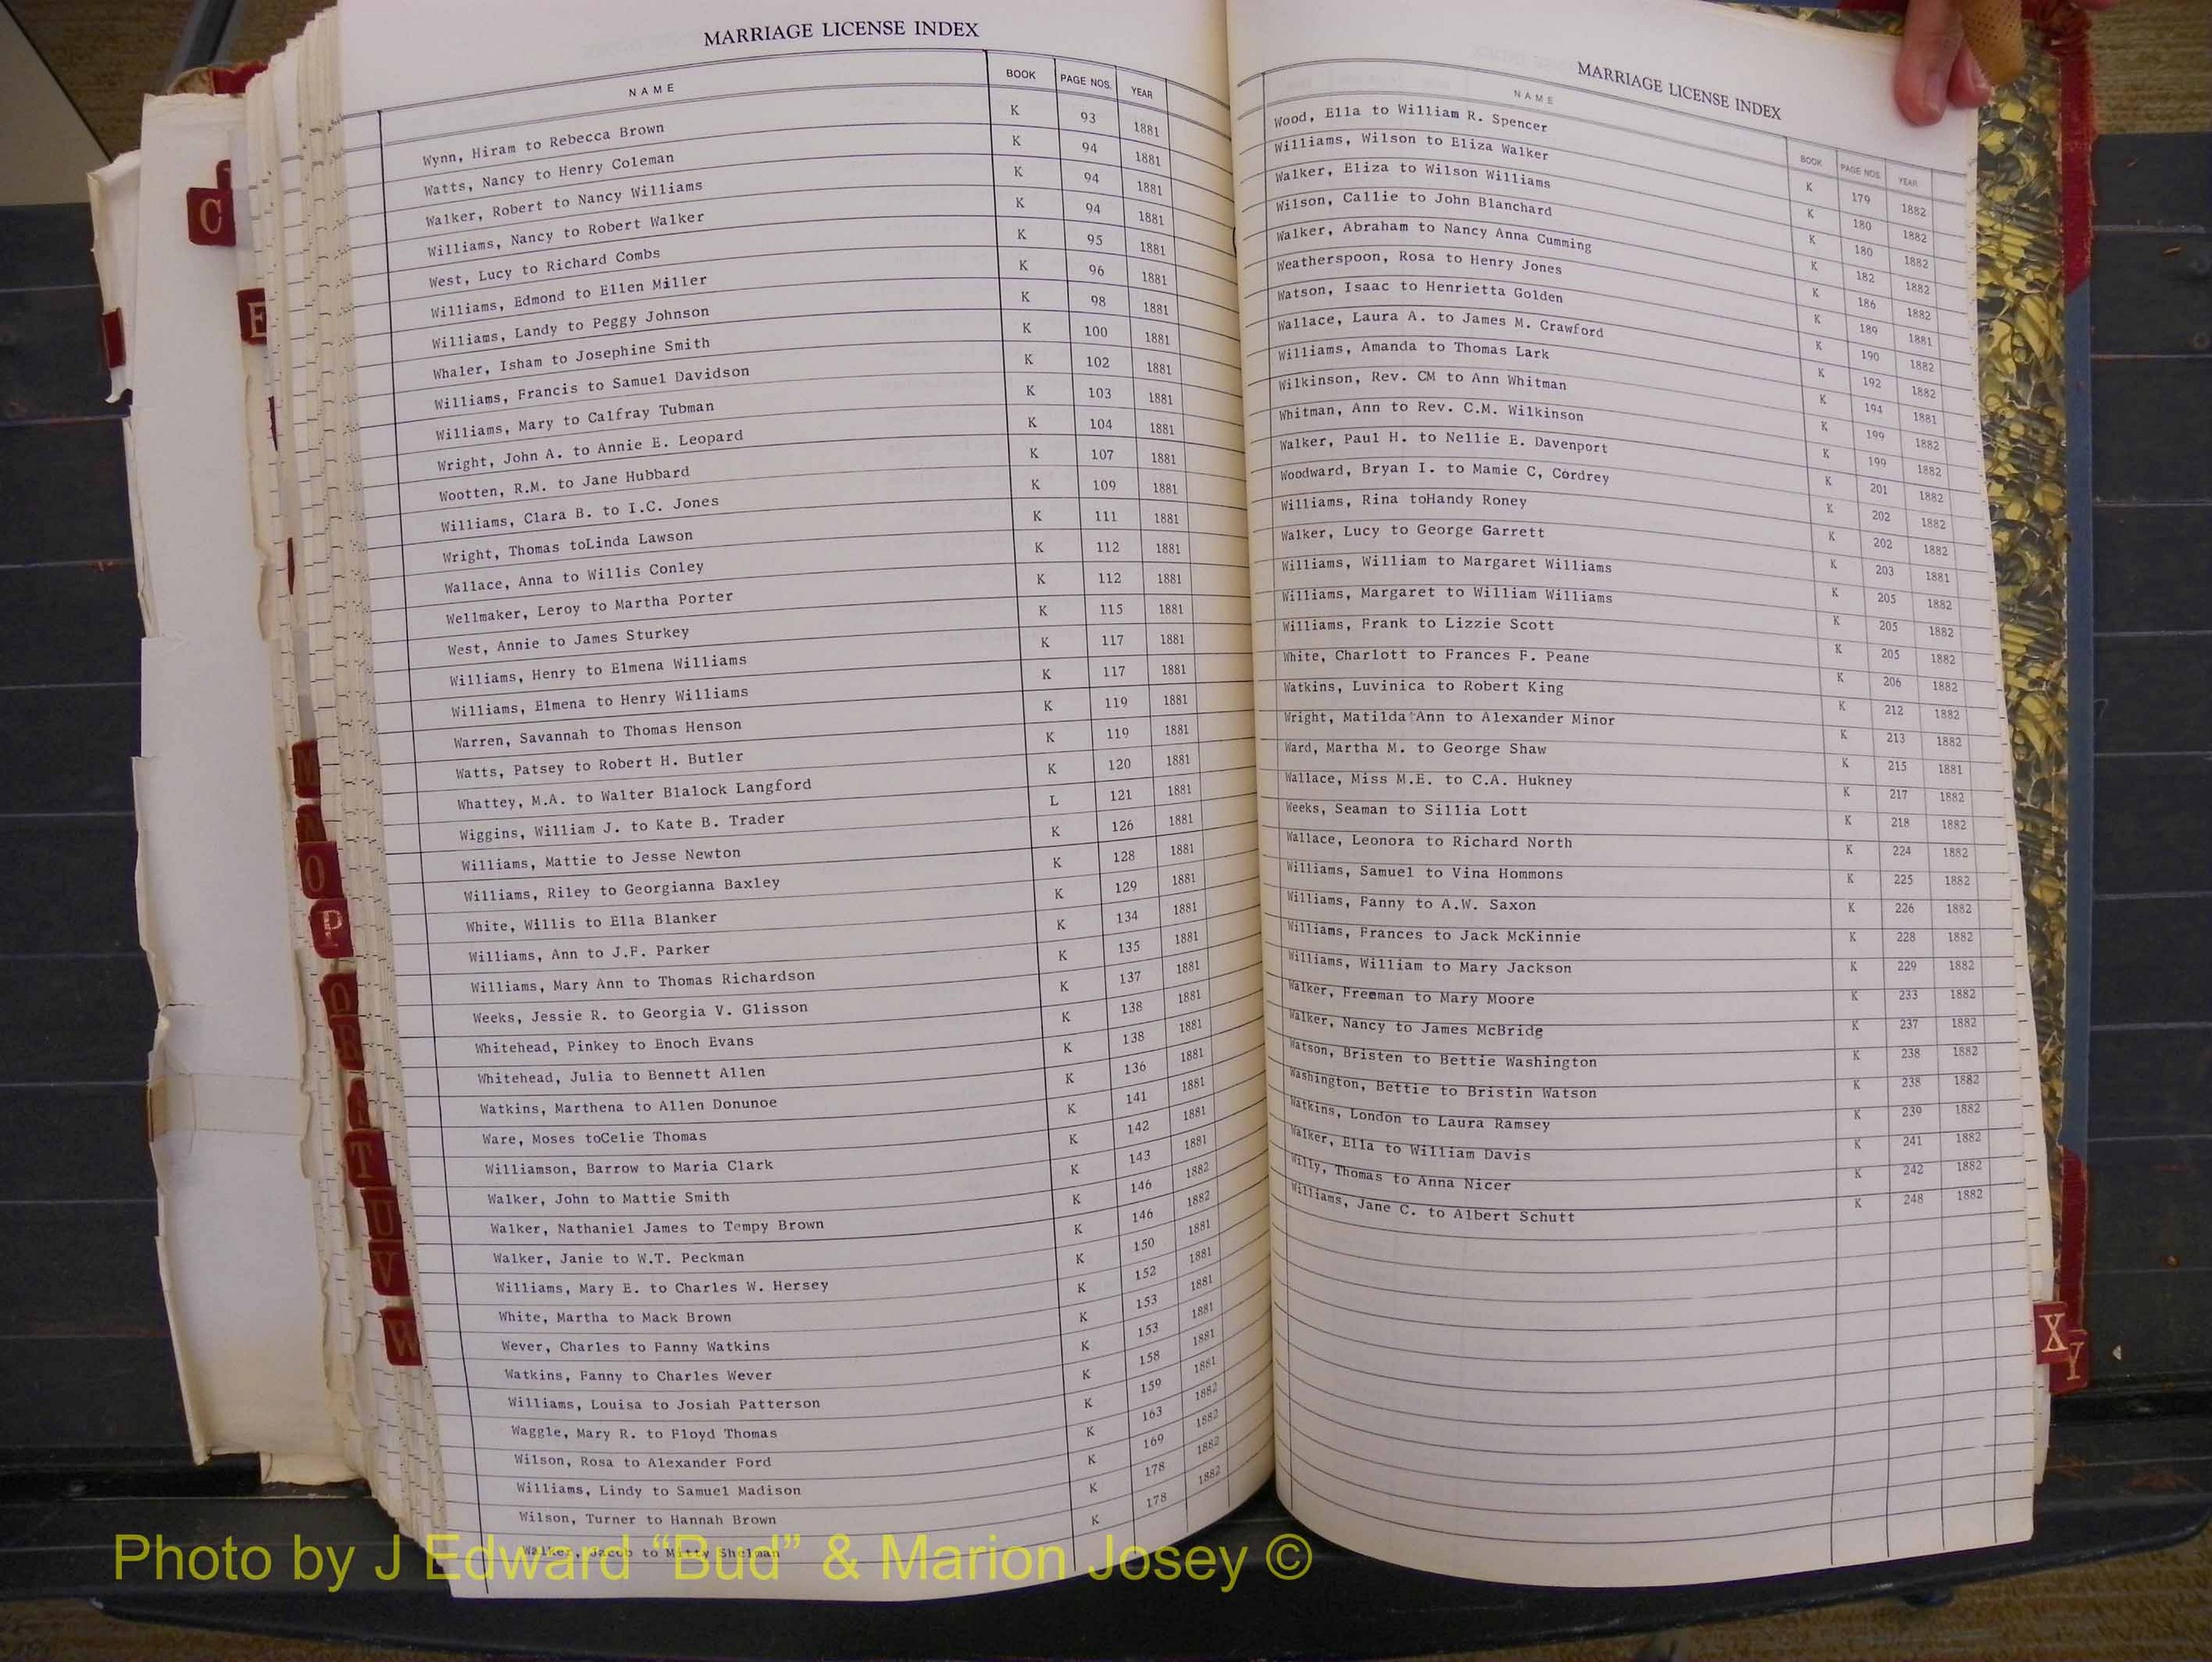 MARRIAGE LICENSE INDEX
NAME BOOK PAGE NOS. YEAR
Wynn, Hiram to Rebecca Brown K 93 1881
Watts, Nancy to Henry Coleman K 94 1881
Walker, Robert to Nancy Williams K 94 1881
Williams, Nancy to Robert Walker K 94 1881
West, Lucy to Richard Combs K 95 1881
Williams, Edmond to Ellen Miller K 96 1881
Williams, Landy to Peggy Johnson K 98 1881
Whaler, Isham to Josephine Smith K 100 1881
Williams, Francis to Samuel Davidson K 102 1881
Williams, Mary to Calfray Tubman K 103 1881
Wright, John A. to Annie E. Leopard K 104 1881
Wootten, R.M. to Jane Hubbard K 107 1881
Williams, Clara B. to I.C. Jones K 109 1881
Wright, Thomas toLinda Lawson K 111 1881
Wallace, Anna to Willis Conley K 112 1881
Wellmaker, Leroy to Martha Porter K 112 1881
West, Annie to James Sturkey K 115 1881
Williams, Henry to Elmena Williams K 117 1881
Williams, Elmena to Henry Williams K 117 1881
Warren, Savannah to Thomas Henson K 119 1881
Watts, Patsey to Robert H. Butler K 119 1881
Whattey, M.A. to Walter Blalock Langford K 120 1881
Wiggins, William J. to Kate B. Trader L 121 1881
Williams, Mattie to Jesse Newton K 126 1881
Williams, Riley to Georgianna Baxley K 128 1881
White, Willis to Ella Blanker K 129 1881
Williams, Ann to J.F. Parker K 134 1881
Williams, Mary Ann to Thomas Richardson K 135 1881
Weeks, Jessie R. to Georgia V. Glisson K 137 1881
Whitehead, Pinkey to Enoch Evans K 138 1881
Whitehead, Julia to Bennett Allen K 138 1881
Watkins, Marthena to Allen Donunoe K 136 1881
Ware, Moses toCelie Thomas K 141 1881
Williamson, Barrow to Maria Clark K 142 1881
Walker, John to Mattie Smith K 143 1881
Walker, Nathaniel James to Tempy Brown K 146 1882
Walker, Janie to W.T. Peckman K 146 1882
Williams, Mary E. to Charles W. Hersey K 150 1881
White, Martha to Mack Brown K 152 1881
Wever, Charles to Fanny Watkins K 153 1881
Watkins, Fanny to Charles Wever K 153 1881
Williams, Louisa to Josiah Patterson K 158 1881
Waggle, Mary R. to Floyd Thomas K 159 1881
Wilson, Rosa to Alexander Ford K 163 1882
Williams, Lindy to Samuel Madison K 169 1882
Wilson, Turner to Hannah Brown K 178 1882
Walker, Jacob to Mitty Shelman K 178 1882
MARRIAGE LICENSE INDEX
NAME BOOK PAGE NOS. YEAR
Wood, Ella to William R. Spencer K 179 1882
Williams, Wilson to Eliza Walker K 180 1882
Walker, Eliza to Wilson Williams K 180 1882
Wilson, Callie to John Blanchard K 182 1882
Walker, Abraham to Nancy Anna Cumming K 186 1882
Weatherspoon, Rosa to Henry Jones K 189 1881
Watson, Isaac to Henrietta Golden K 190 1882
Wallace, Laura A. to James M. Crawford K 192 1882
Williams, Amanda to Thomas Lark K 194 1881
Wilkinson, Rev. CM to Ann Whitman K 199 1882
Whitman, Ann to Rev. C.M. Wilkinson K 199 1882
Walker, Paul H. to Nellie E. Davenport K 201 1882
Woodward, Bryan I. to Mamie C, Cordrey K 202 1882
Williams, Rina toHandy Roney K 202 1882
Walker, Lucy to George Garrett K 203 1881
Williams, William to Margaret Williams K 205 1882
Williams, Margaret to William Williams K 205 1882
Williams, Frank to Lizzie Scott K 205 1882
White, Charlott to Frances F. Peane K 206 1882
Watkins, Luvinica to Robert King K 212 1882
Wright, Matilda Ann to Alexander Minor K 213 1882
Ward, Martha M. to George Shaw K 215 1881
Wallace, Miss M.E. to C.A. Hukney K 217 1882
Weeks, Seaman to Sillia Lott K 218 1882
Wallace, Leonora to Richard North K 224 1882
Williams, Samuel to Vina Hommons K 225 1882
Williams, Fanny to A.W. Saxon K 226 1882
Williams, Frances to Jack McKinnie K 228 1882
Williams, William to Mary Jackson K 229 1882
Walker, Freeman to Mary Moore K 233 1882
Walker, Nancy to James McBride K 237 1882
Watson, Bristen to Bettie Washington K 238 1882
Washington, Bettie to Bristin Watson K 238 1882
Watkins, London to Laura Ramsey K 239 1882
Walker, Ella to William Davis K 241 1882
Willy, Thomas to Anna Nicer K 242 1882
Williams, Jane C. to Albert Schutt K 248 1882
C
E
O
P
R
T
U
V
W
X
Y
Photo by J Edward “Bud” & Marion Josey ©